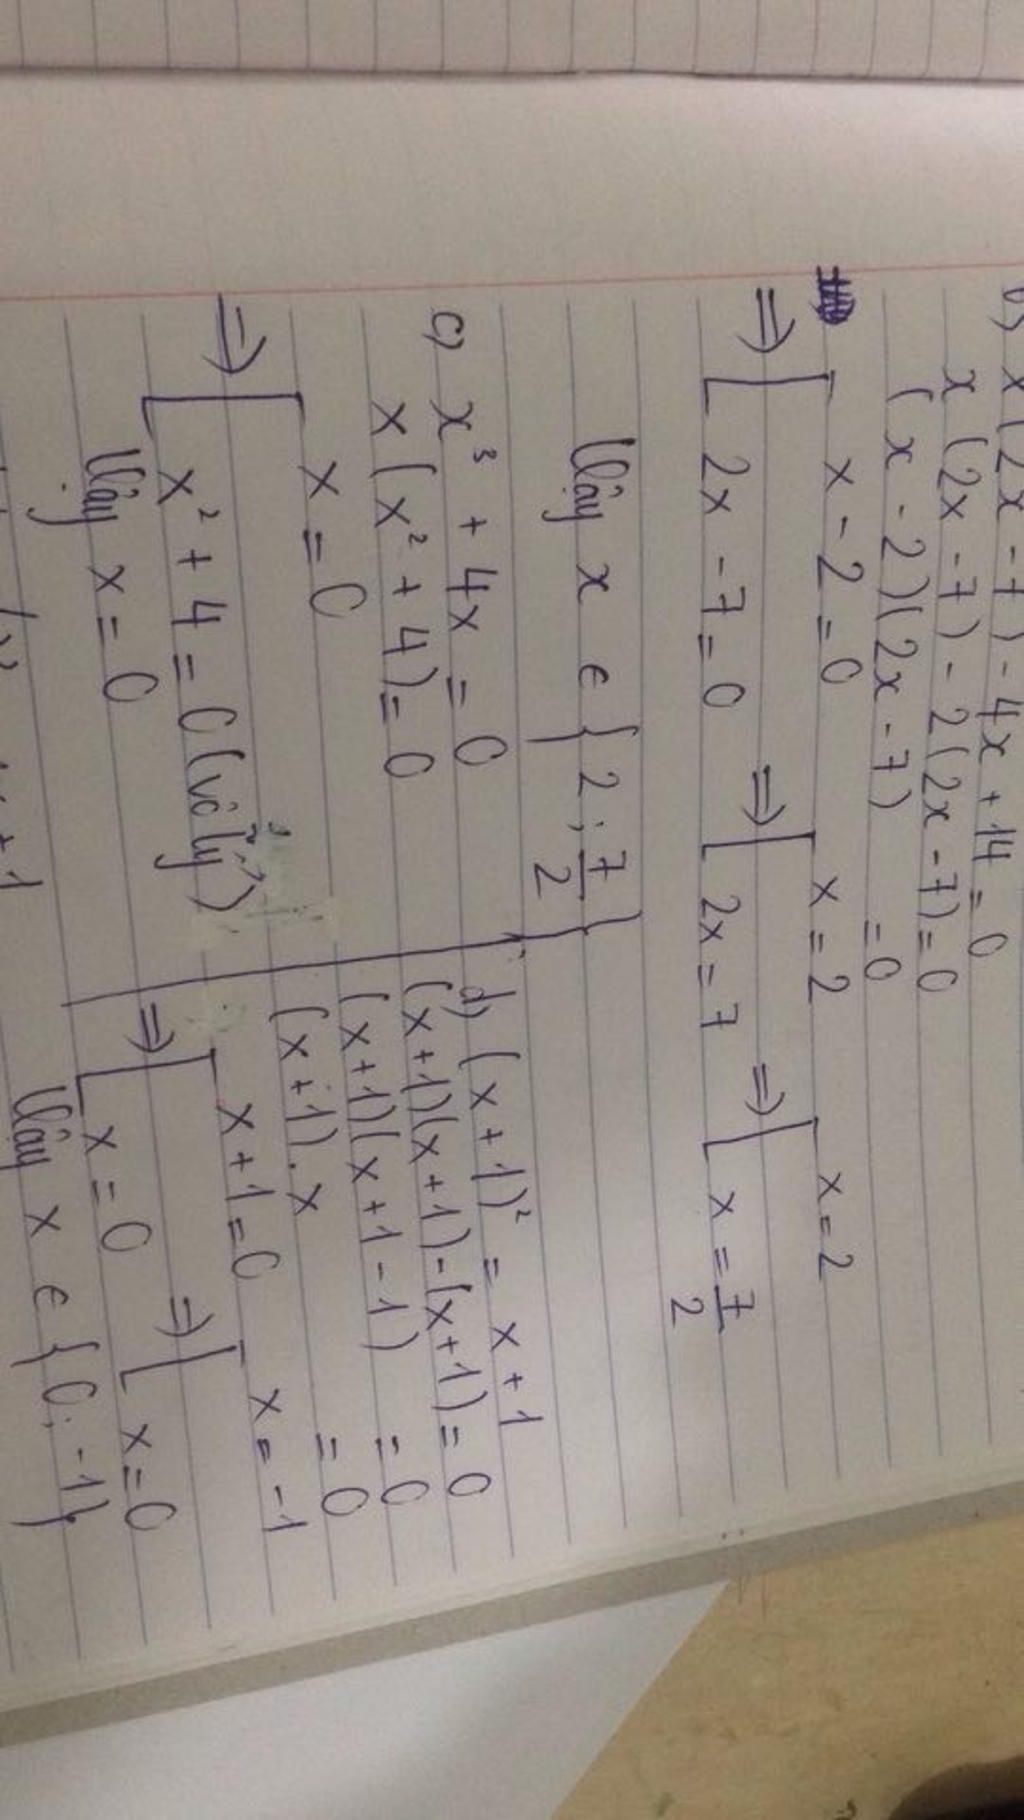 b) x(2x - 7) - 4x + 14 = 0
x(2x - 7) - 2(2x - 7) = 0
(x - 2)(2x - 7) = 0
⇒ [ x - 2 = 0 ⇒ [ x = 2 ⇒ [ x = 2
2x - 7 = 0 2x = 7 x = 7/2
Vậy x ∈ { 2 ; 7/2 }
c) x³ + 4x = 0
x(x² + 4) = 0
⇒ [ x = 0
x² + 4 = 0 (vô lý)
Vậy x = 0
d) (x + 1)² = x + 1
(x + 1)(x + 1) - (x + 1) = 0
(x + 1)(x + 1 - 1) = 0
(x + 1) . x = 0
⇒ [ x + 1 = 0 ⇒ [ x = -1
x = 0 x = 0
Vậy x ∈ { 0 ; -1 }